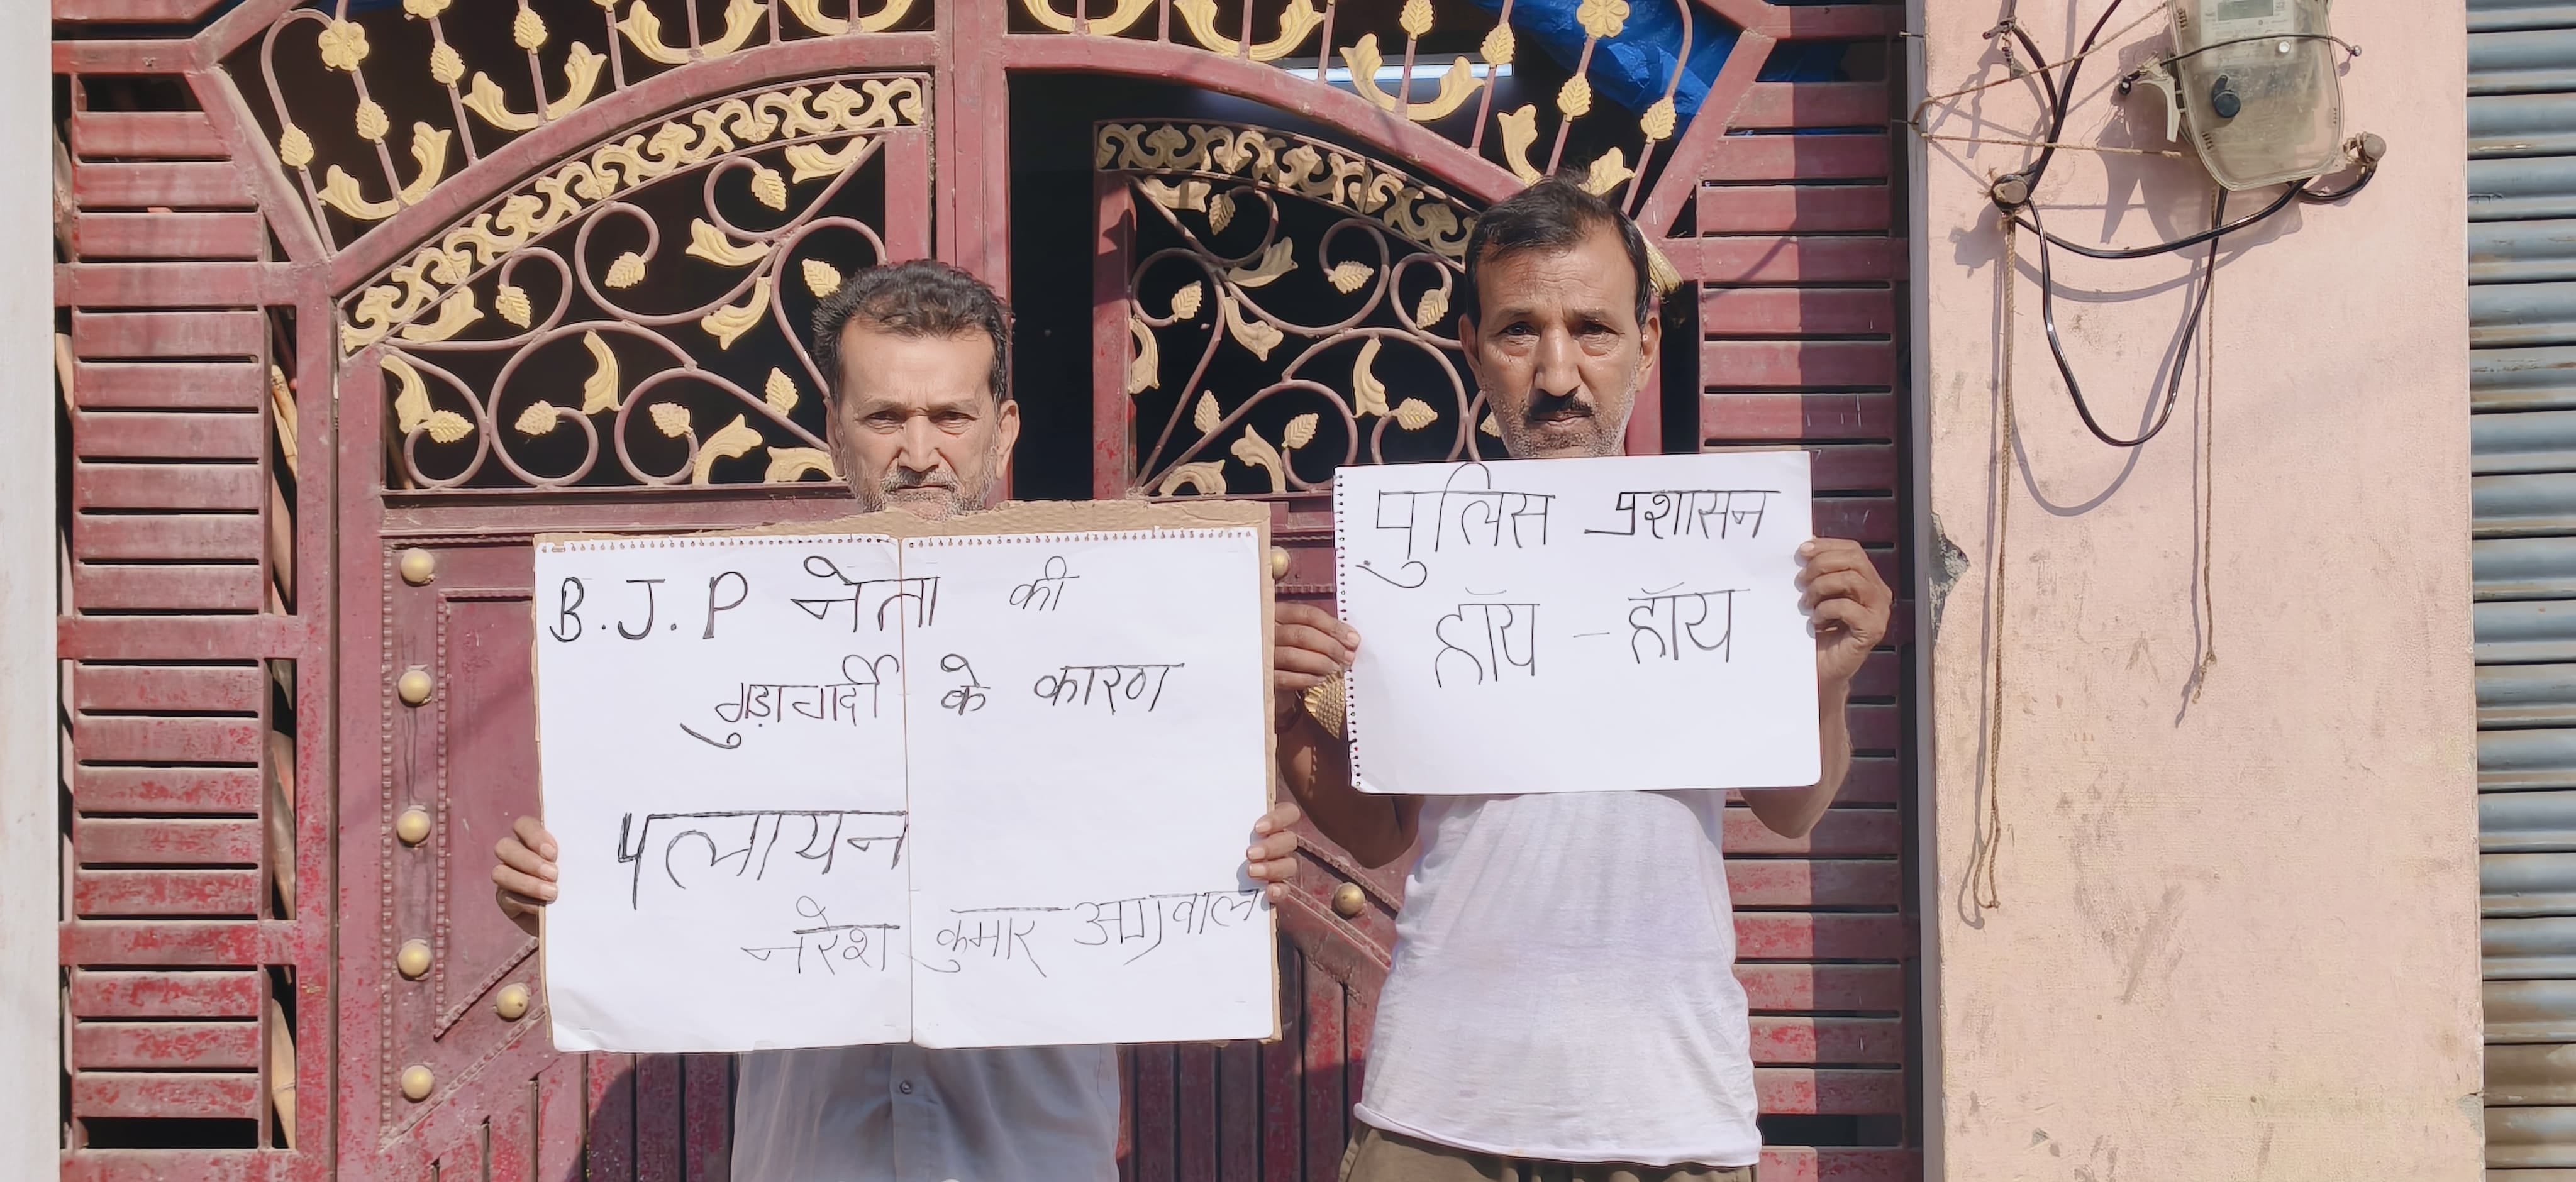 B.J.P नेता की
गुड़ागर्दी के कारण
पलायन
नरेश कुमार अग्रवाल
पुलिस प्रशासन
हॉय - हॉय